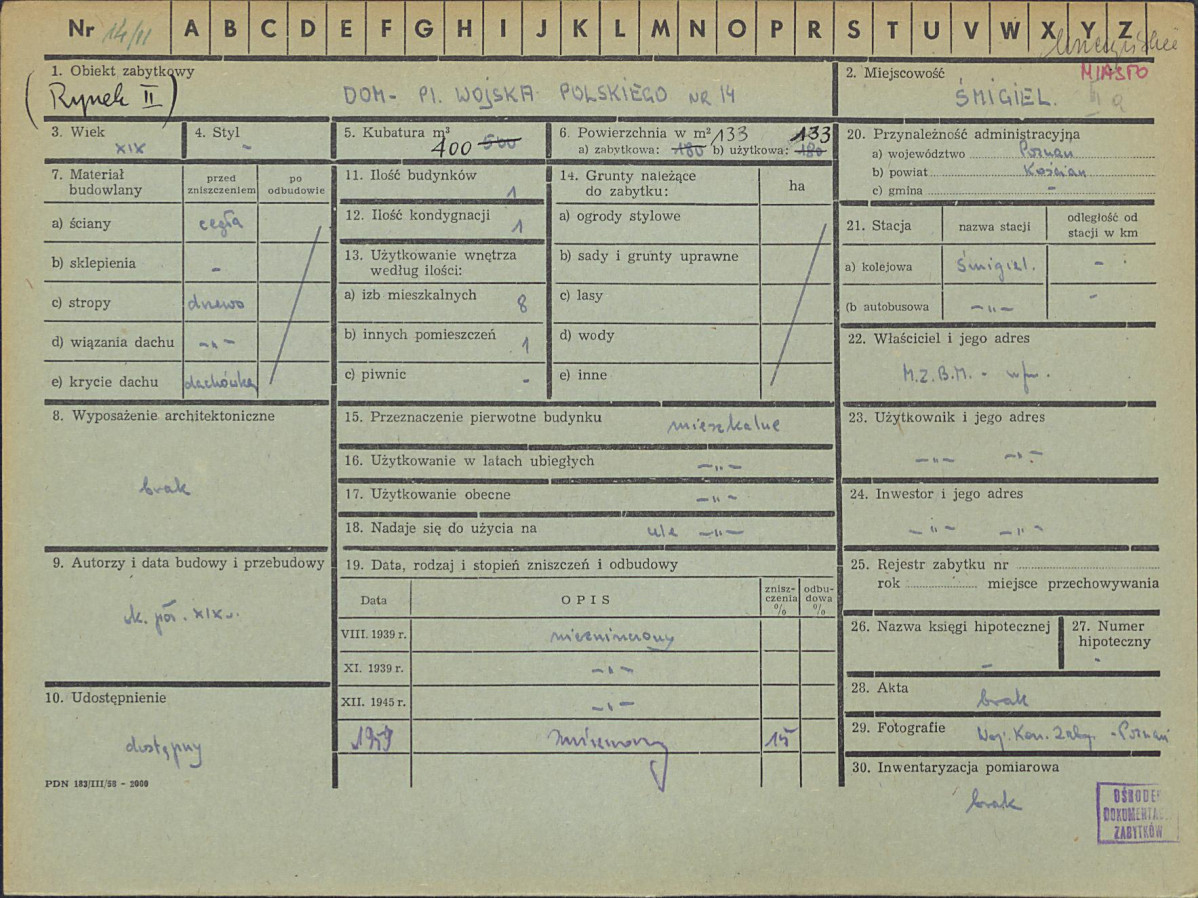 Nr 14/II A B C D E F G H I J K L M N O P R S T U V W X Y Z
1. Obiekt zabytkowy
(Rynek II)
DOM - Pl. WOJSKA POLSKIEGO NR 14
2. Miejscowość MIASTO
ŚMIGIEL.
3. Wiek
XIX
4. Styl
-
5. Kubatura m³
400 500
6. Powierzchnia w m² 133 133
a) zabytkowa: 180 b) użytkowa: 180
20. Przynależność administracyjna
a) województwo Poznań
b) powiat Kościan
c) gmina -
7. Materiał budowlany
przed zniszczeniem
po odbudowie
a) ściany cegła
b) sklepienia -
c) stropy drewo
d) wiązania dachu -„-
e) krycie dachu dachówka
11. Ilość budynków
1
12. Ilość kondygnacji
1
13. Użytkowanie wnętrza
według ilości:
a) izb mieszkalnych 8
b) innych pomieszczeń 1
c) piwnic -
14. Grunty należące
do zabytku:
ha
a) ogrody stylowe
b) sady i grunty uprawne
c) lasy
d) wody
e) inne
21. Stacja
nazwa stacji
odległość od
stacji w km
a) kolejowa Śmigiel. -
(b autobusowa -„- -
22. Właściciel i jego adres
M.Z.B.M. -
8. Wyposażenie architektoniczne
brak
15. Przeznaczenie pierwotne budynku
mieszkalne
16. Użytkowanie w latach ubiegłych
-„-
17. Użytkowanie obecne
-„-
18. Nadaje się do użycia na
-„-
23. Użytkownik i jego adres
-„- -„-
24. Inwestor i jego adres
-„- -„-
9. Autorzy i data budowy i przebudowy
XIX w.
19. Data, rodzaj i stopień zniszczeń i odbudowy
Data
OPIS
znisz-
czenia
%
odbu-
dowa
%
VIII. 1939 r. niezniszczony
XI. 1939 r. -„-
XII. 1945 r. -„-
1959 zniszczony 15
25. Rejestr zabytku nr
rok miejsce przechowywania
26. Nazwa księgi hipotecznej
-
27. Numer
hipoteczny
-
28. Akta
brak
29. Fotografie
Woj. Kon. Zaby. - Poznań
30. Inwentaryzacja pomiarowa
brak
10. Udostępnienie
dostępny
PDN 183/III/58 - 2000
OŚRODEK
DOKUMENTACJI
ZABYTKÓW